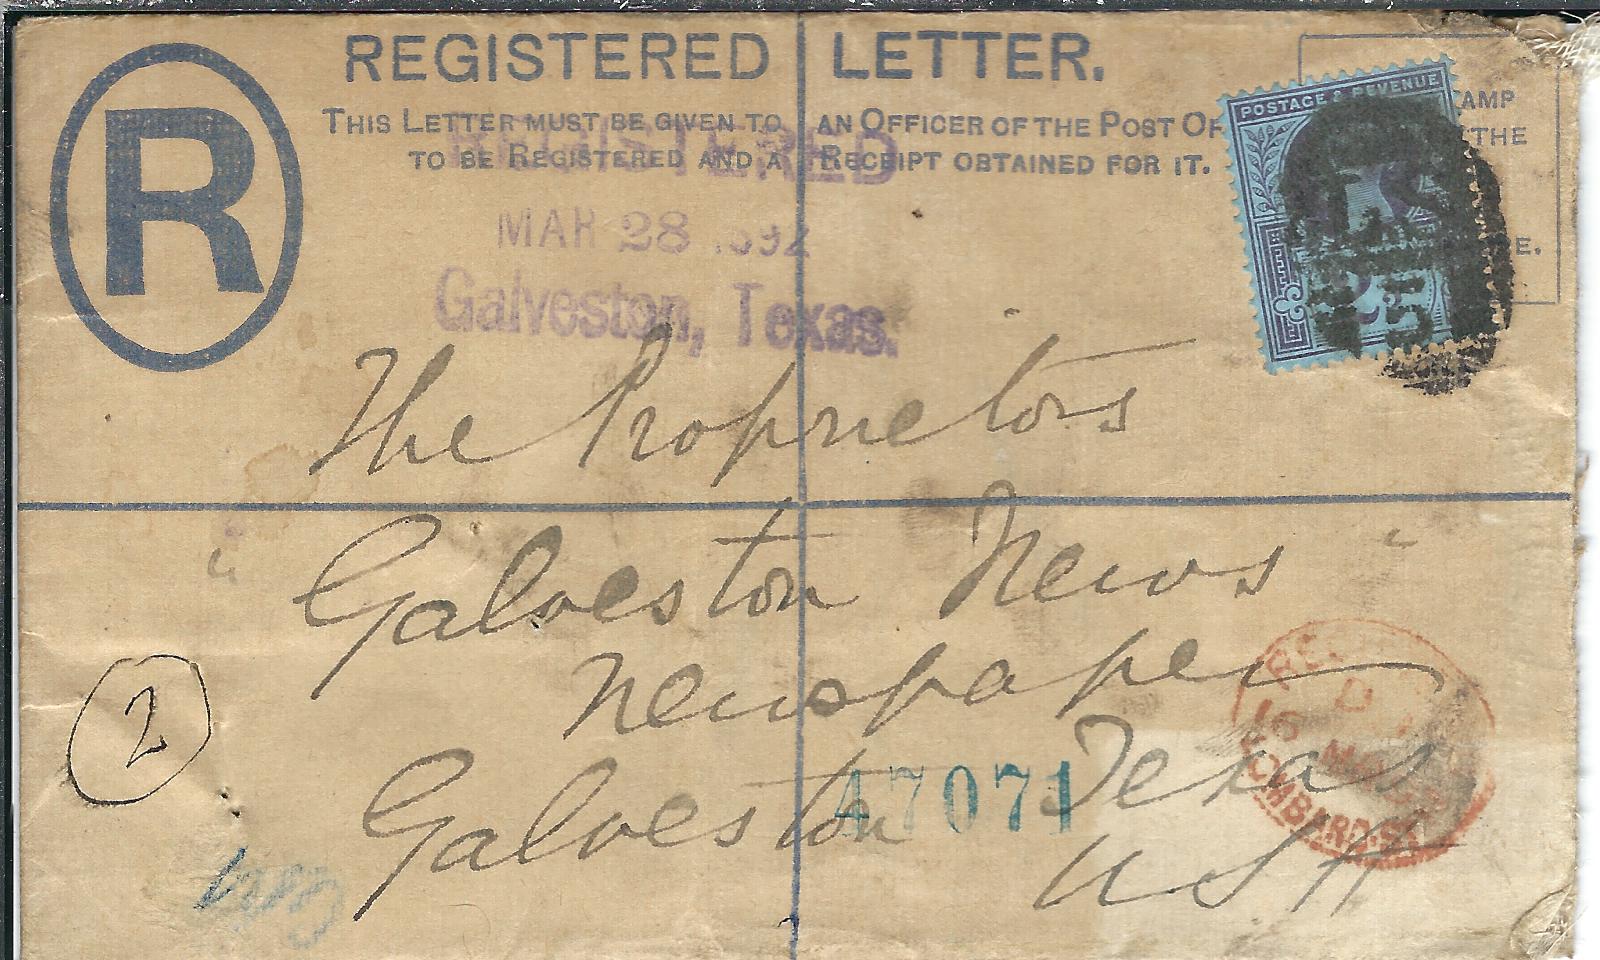 REGISTERED LETTER.
R
THIS LETTER MUST BE GIVEN TO AN OFFICER OF THE POST OF
TO BE REGISTERED AND A RECEIPT OBTAINED FOR IT.
POSTAGE & REVENUE
AMP
THE
E.
REGISTERED
MAR 28 1892
Galveston, Texas.
The Proprietors
"Galveston News"
Newspaper
Galveston Texas
USA
47071
2
REG
D
16 MA
LOMBARD.ST